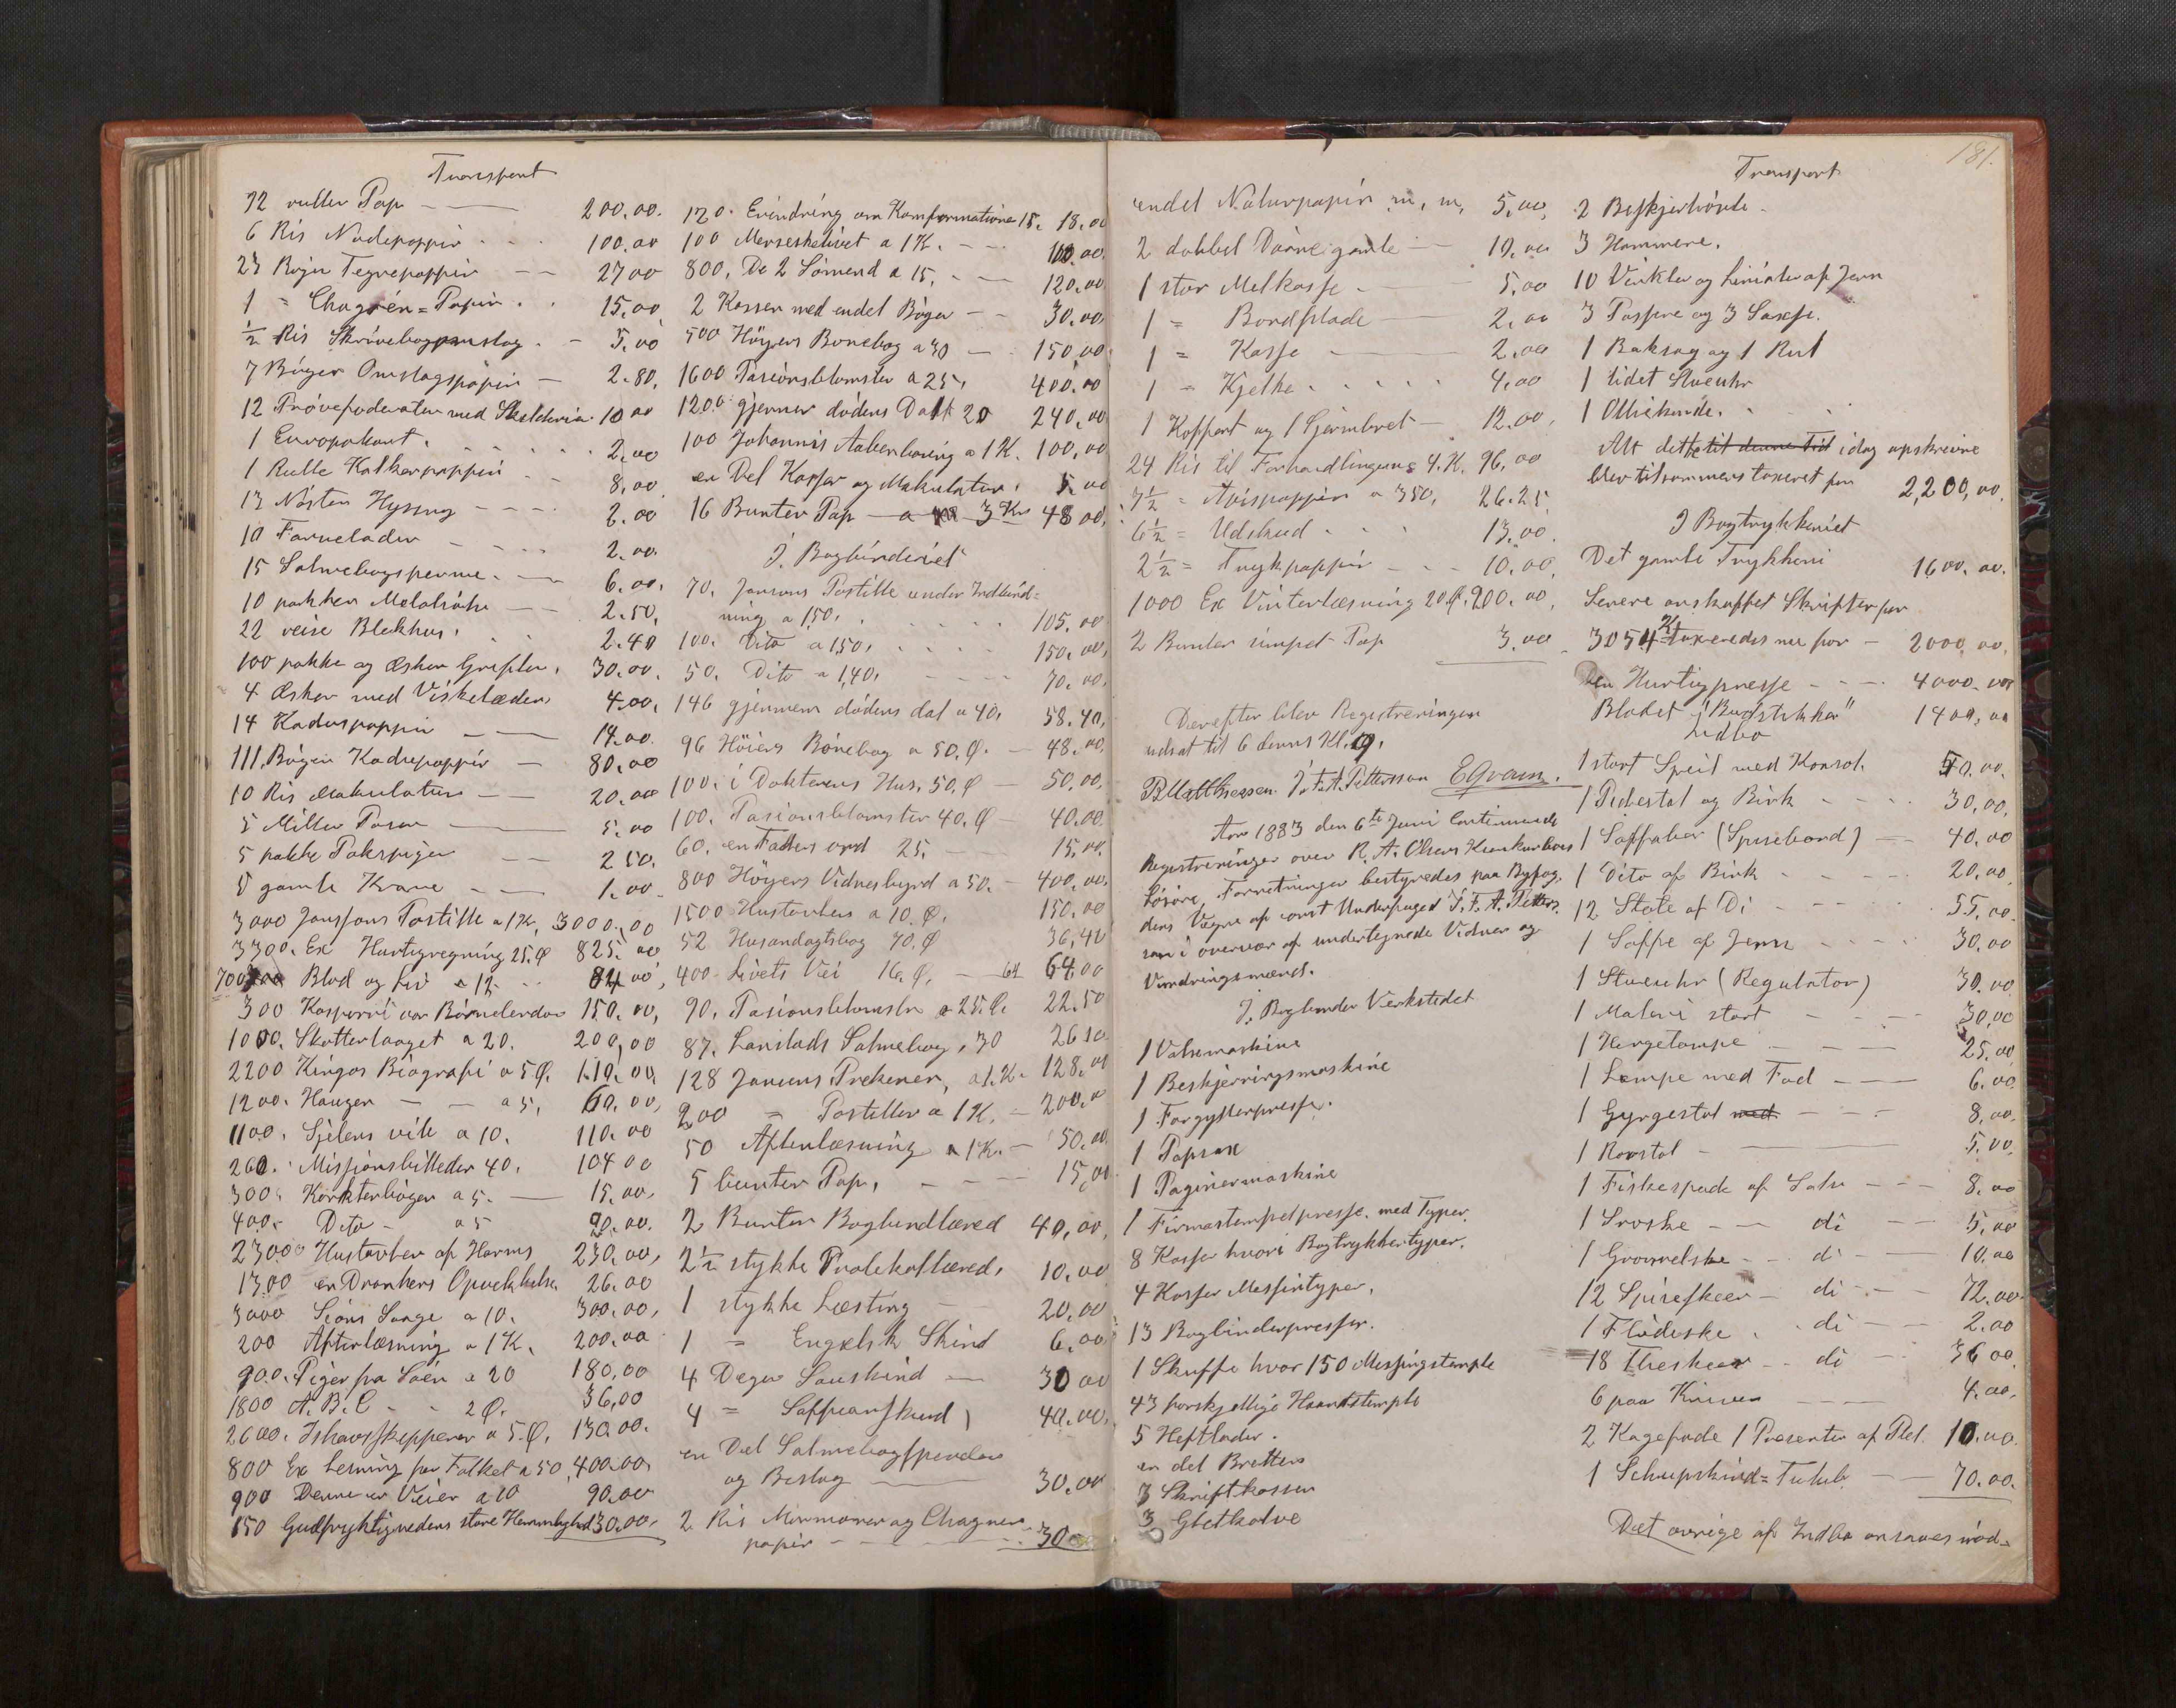 Transport
72 ruller Pap — 200.00.
6 Ris Nodepappir . . . 100.00
27 Bøger Tegnepappir — — 27 00
1 = Chagrén = Papir . . 15.00
½ Ris Skrivebogomslag . — 5.00
7 Bøger Omslagspapir — 2.80.
12 Prøvefoderaler med Skilderier 10 00
1 Europakart . . . . 2.00
1 Rulle Kalkerpappir . . 8.00
13 Nøster Hyssing — — — 2.00
10 Farvelader — . . . 2.00.
15 Salmebogsperme . — 6.00.
10 pakker — — 2.50.
22 reise Blekhus . . . 2.40
100 pakke og Æsker Grifler . 30.00.
4 Æsker med Viskelæder 4.00,
14 Kaduspappir — — 14.00.
111. Bøger Kadrepappir — 80.00
10 Ris Makulatur — — 20.00
5 Miller Poser — 5.00
5 pakke Takspiger — — 2 50.
5 gamle Krane — — 1.00
3000 Janssons Postille a 1 K, 3000.,00
3300. Ex Hurtigregning 25.Ø 825.00
700 Blod og Liv a 12 . . 84 00,
300 Kasperri var Børnelerdom 150.00,
1000. Skatterlaaget a 20. 200,00
2200 Kingos Biografi a 5 Ø. 110.00.
1200. Hauger — — a 5, 60.00,
1100. Sjelens vile a 10. 110.00
260. Missionsbilleder 40. 104 00
300. Karakterbøger a 5. — 15.00,
400. Dito — a 5 20.00.
2300. Hustavler af Harms 230.00,
1300 en Drankers Opvekkelse 26.00
3000 Sions Sange a 10. 300.00,
200 Aftenlæsning a 1 K, 200.00
900. Piger fra Søen a 20 180,00
1800 A. B. C — . 2 Ø. 36,00
2600. Ishavsskipperer a 5. Ø, 130.00.
800 Ex Lesning for Folket a 50, 400.00,
900 Denne er Veien a 10 90.00
150 Gudfryktighedens store Hemmelighed 30.00.
120. Erindring om Konfirmationen 15. 18.00
100 Menneskelivet a 1 K. — — 100.00.
800, De 2 Sømend a 15, — 120.00
2 Kasser med endel Bøger — — 30.00
500 Höyers Bønebog a 30 — 150,00
1600 Pasionsblomster a 25, 400.00
1200 gjennem dødens Dal 20 240,00
100 Johannis Aabenbaring a 1 K. 100,00
en Del Kasser og Makulatur . 5.00
16 Bunter Pap — a 3 Kr 48 00,
I. Bogbinderiet
70. Jansons Postille under Indbind=
ning a 1,50. . . . . 105.00
100. Dito a 1,50, . . . . 150,00,
50. Dito a 1,40, — — — 70.00,
146 gjennem dødens dal a 40, 58.40,
96 Höiers Bönebog a 50. Ø. — 48.00,
100. i Doktorens Hus, 50. Ø — 50.00,
100. Pasionsblomster 40. Ø — 40.00.
60. en Faders ord 25. — 15.00.
800 Höyers Vidnesbyrd a 50. — 400.00.
1500 Hustavler a 10 Ø. 150.00
52 Husandagtsbog 70. Ø 36,40
400 Livets Vei 16. Ø, — 64.00
90. Pasionsblomster a 25. Ø. 22.50
87. Lanstads Salmebog, 30 26 10
128 Jansens Prekener, a 1. K. 128.00
200 = Postiller a 1 K. — 200.00
50 Aftenlæsning a 1 K. — 50.00
5 bunter Pap, — — — 15,00
2 Bunter Bogbindlæred 40,00,
2½ stykke læred, 10.00
1 stykke Læsting — 20.00
1 = Engelsk Skind 6.00
4 Deger Saueskind — 30 00
4 = Saffianskind 40.00,
en Del Salmebogspender
og Beslag — 30.00
2 Ris Mermorer og Chagrin
papir — — — 30
181.
endel Naturpapir m, m, 5,00,
2 dobbel Dörre gamle — 10.00
1 stor Melkasse . — 5,00
1 = Bordplade — 2.00
1 = Kasse — 2.00
1 = Kjelke . . . . 4,00
1 Koppert og 1 — 12.00,
24 Ris til Forhandlingene 4. K. 96,00
7½ = Avispappir a 350, 26.25.
6½ = Udskud . . . 13.00.
2½ = Trykpappir — — 10.00.
1000 Ex Vinterlæsning 20 Ø. 200.00,
2 Bunter simpel Pap 3.00
Derefter blev Registreringen
udsat til 6 dennes Kl. 9.
P Matthiessen J. F. A. Pettersson E Qvam.
Aar 1883 den 6te Juni continuerede
Registreringen over R. A. Olsens Konkursboes
Løsøre, Forretningen bestyredes paa Byfog.
dens Vegne af const Underfoged J. F. A. Petters.
son i overvær af undertegnede Vidner og
Vurderingsmænd.
I. Bogbinder Verkstedet
1 Valsemaskine
1 Beskjeringsmaskine
1 Forgylderpresse.
1 Papsax
1 Paginermaskine
1 Firmastempelpresse. med Typer.
8 Kasser hvori Bogtrykkertyper.
4 Kasser Messintyper,
13 Bogbinderpresser.
1 Skuffe hvor 150 Messingstemple
43 forskjellige Haandstemple
5 Heftlader.
en del Bretter
3 Skriftkasser
3 Glitkolve
Transport
2 Beskjerhövle —
3 Hammere,
10 Vinkler og Liniäler af Jern
3 Passere og 3 Saxse.
1 Baksag og 1 Rul
1 lidet Stueuhr
1 . . .
Alt dette til denne Tid idag opskrevne
blev tilsammens taxeret for 2,200,00,
I Bogtrykkeriet
Det gamle Trykkeri 1600.00.
Senere anskaffet Skrifter for
3054 Kr taxeredes nu for — 2000,00,
Den Hurtigpresse — — — 4000.00
Bladet "Budstikker" 1400,00
Indbo
1 stort Speil med Konsol. 50.00.
1 Pidestal og Birk — — 30,00,
1 Saffaber (Spisebord) — 40.00
1 Dito af Birk — — — 20.00,
12 Stole af Di — — — 55,00.
1 Saffe af Jern — — — 30.00
1 Stueuhr (Regulator) 30.00
1 Maleri stort — — — 30,00
1 Hengelampe — — — 25.00
1 Lampe med Fod — — 6.00,
1 Gyngestol med — — — 8,00.
1 Rorstol — 5.00.
1 Fiskespade af Sølv — — — 8.00
1 Sroske — — di — — 5,00
1 Gravvelske — — di — — 10,00
12 Spiseskeer — di — — 72.00
1 Flödeske . . di — — 2.00
18 Theskeer — di — 36 00.
6 par Kniver — — — 4.00.
2 Kagefade 1 Presenter af Plet. 10.00.
1 Schupskind = — — 70.00.
Det øvrige af Indbo ansaaes nød=